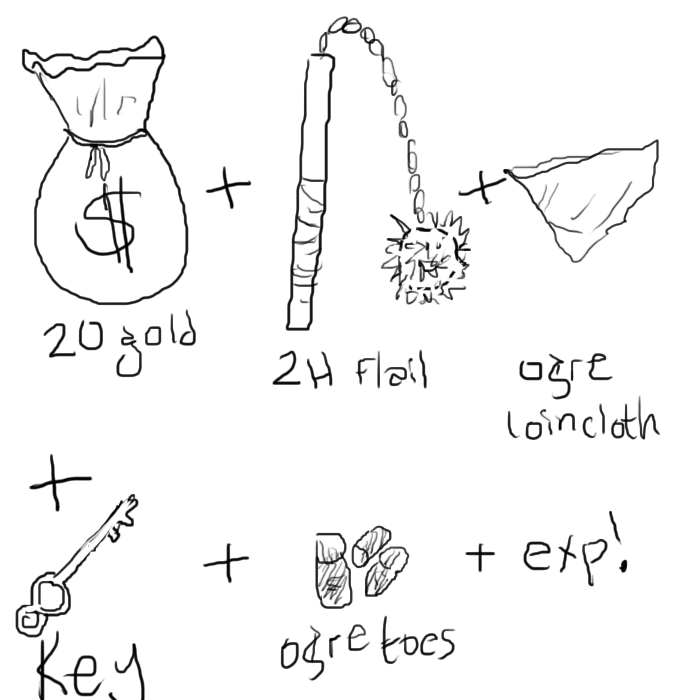 $
+
+
20 gold
2H flail
ogre
loincloth
+
+
+ exp!
key
ogre toes